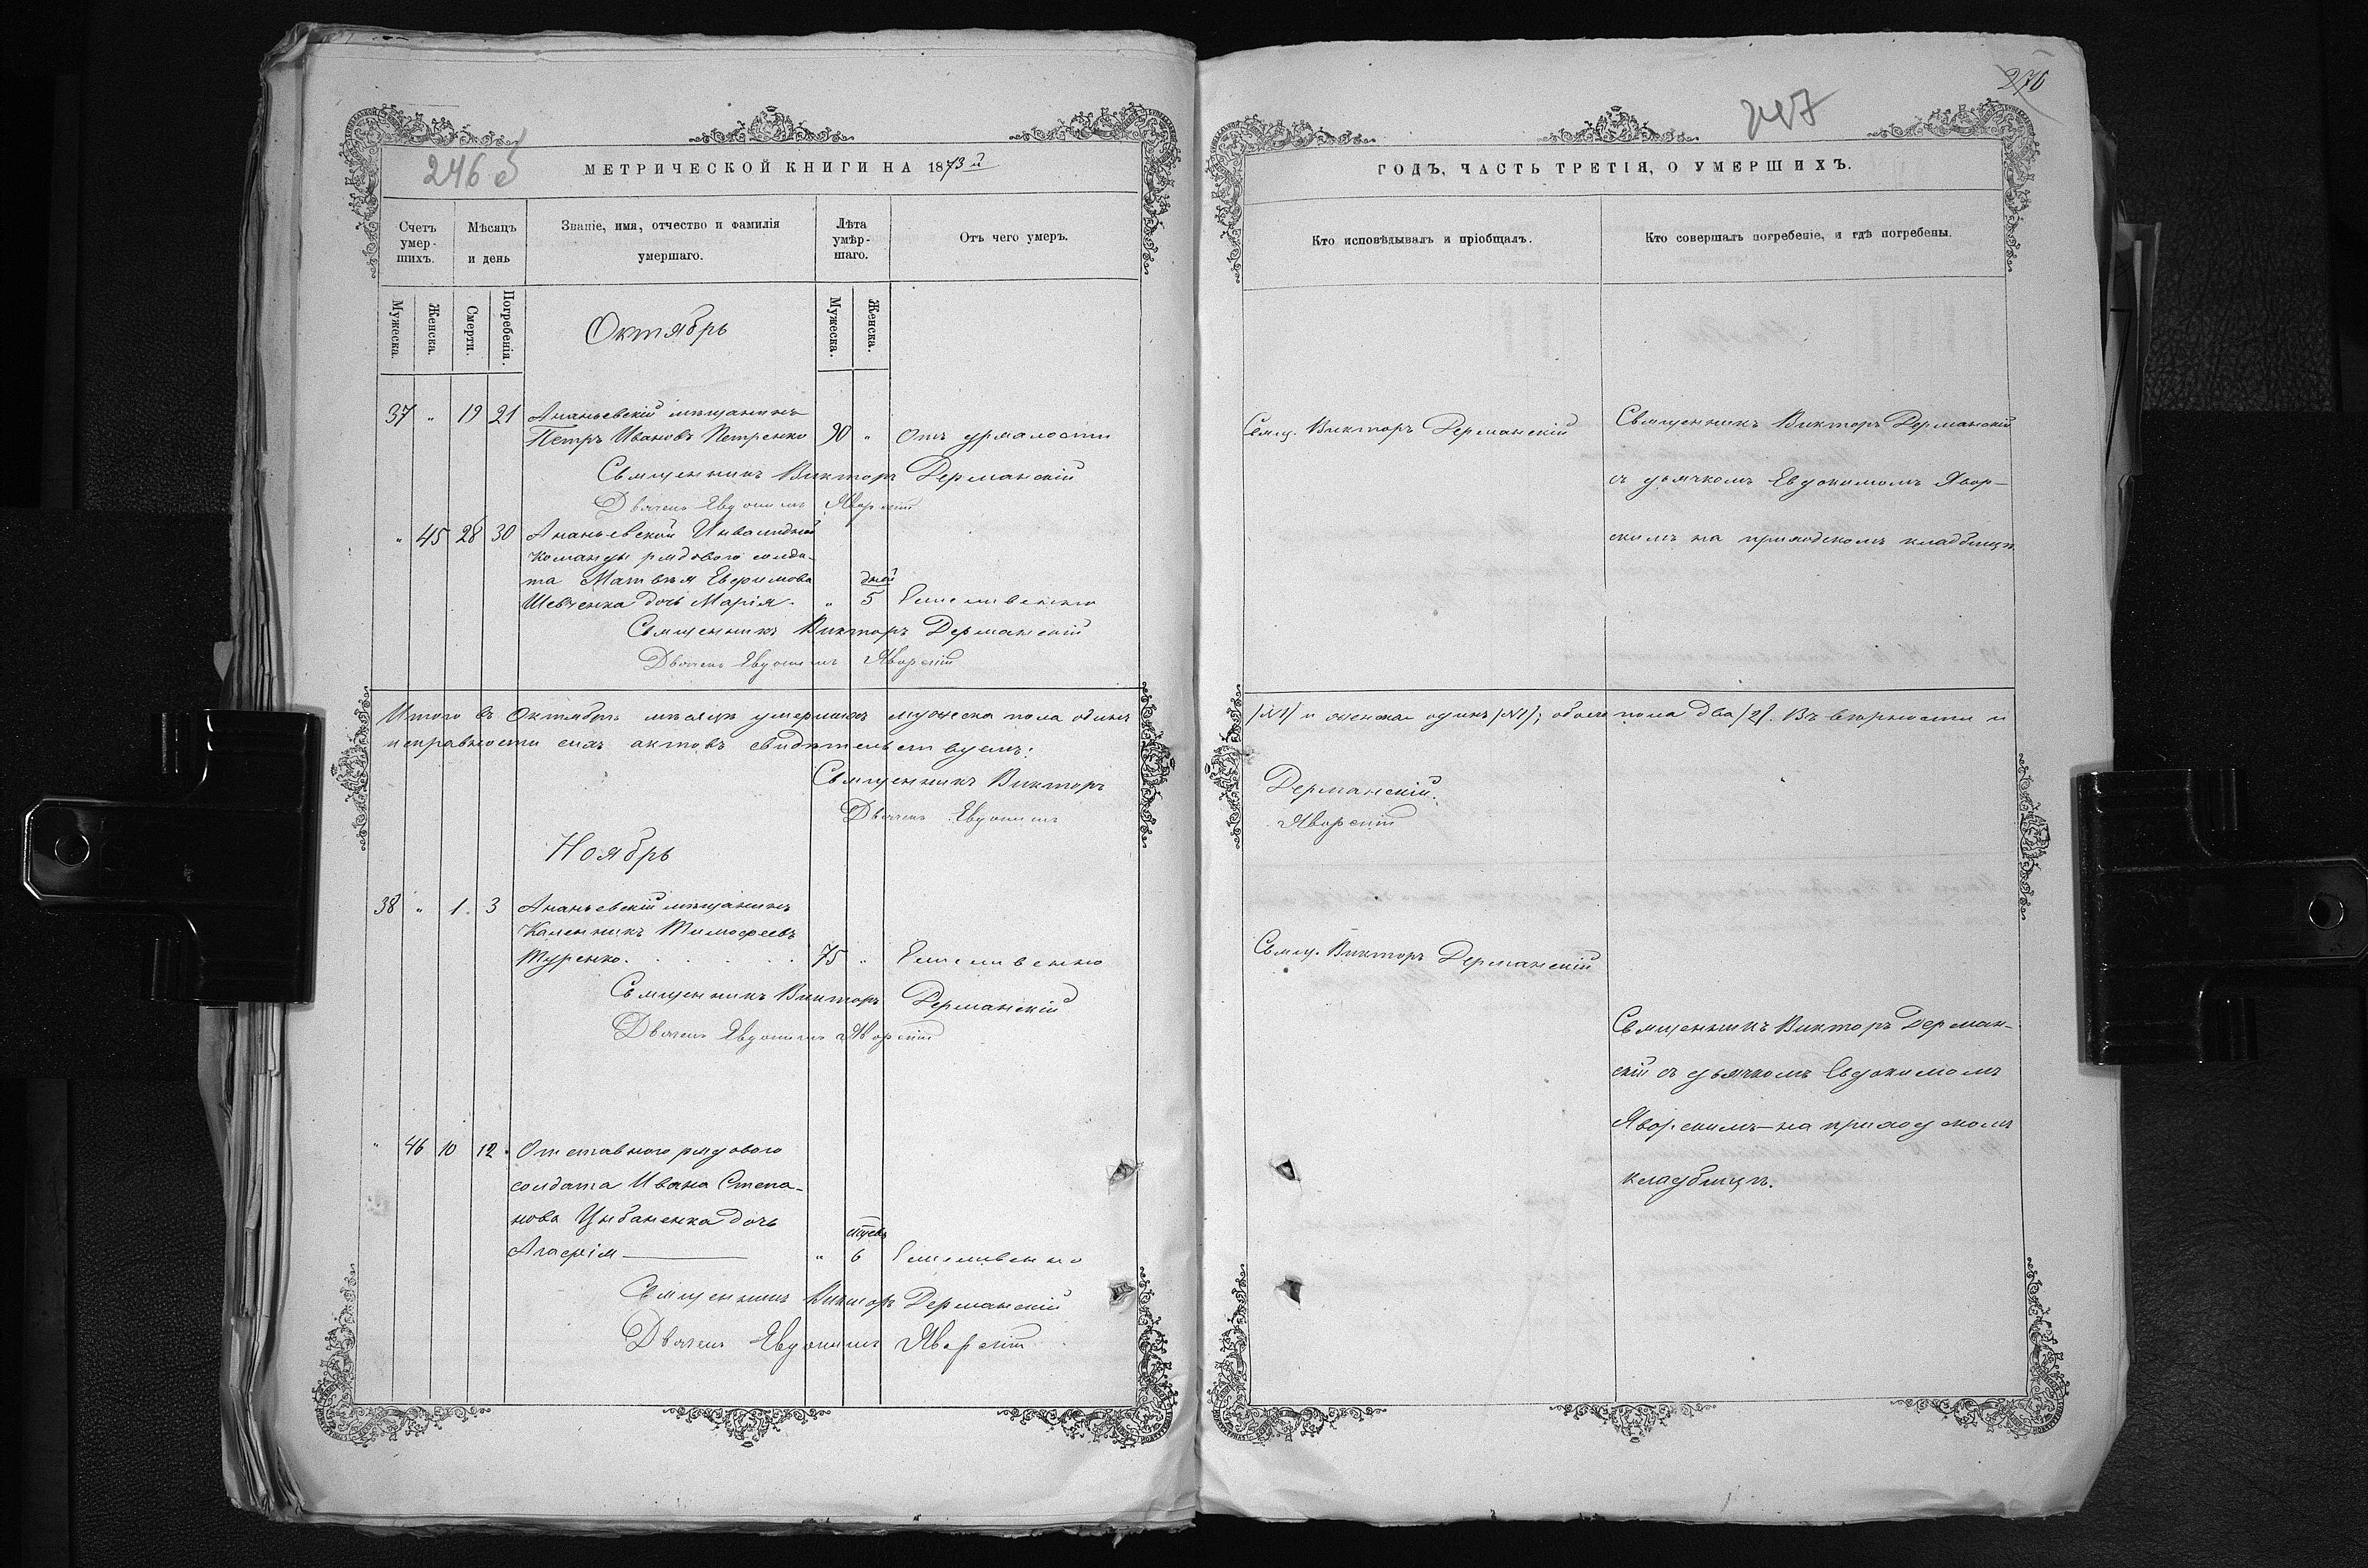 246 об
МЕТРИЧЕСКОЙ КНИГИ НА 1873й
Счетъ умер- шихъ.
Мѣсяцъ и день
Званіе, имя, отчество и фамилія умершаго.
Лѣта умѣр- шаго.
Отъ чего умеръ.
Мужеска.
Женска.
Смерти.
Погребенія.
Мужеска.
Женска.
Октябрь
37 " 19 21 Ананьевскій мѣщанинъ
Петръ Ивановъ Петренко 90 " Отъ дрмалости
Священникъ Викторъ Дерманскій
Дьячекъ Евдокимъ Яворскій
" 45 28 30 Ананьевской Инвалидной
команды рядового солда-
та Матвѣя Евфимова дней
Шевченка дочь Марія. " 5 Естественно
Священникъ Викторъ Дерманскій
Дьячекъ Евдокимъ Яворскій
Итого въ Октябрѣ мѣсяцѣ умершихъ мужеска пола одинъ
исправности сихъ актовъ свидѣтельствуемъ:
Священникъ Викторъ
Дьячекъ Евдокимъ
Ноябрь
38 " 1. 3 Ананьевскій мѣщанинъ
Каленникъ Тимофеевъ
Туренко. 75 " Естественно
Священникъ Викторъ Дерманскій
Дьячекъ Евдокимъ Яворскій
" 46 10 12. Отставного рядового
солдата Ивана Степа-
нова Цыбаненка дочь мѣсяц.
Агафія " 6 Естественно
Священникъ Викторъ Дерманскій
Дьячекъ Евдокимъ Яворскій
276
247
ГОДЪ, ЧАСТЬ ТРЕТІЯ, О УМЕРШИХЪ.
Кто исповѣдывалъ и пріобщалъ.
Кто совершалъ погребеніе, и гдѣ погребены.
Свящ. Викторъ Дерманскій
Священникъ Викторъ Дерманскій
съ дьячкомъ Евдокимомъ Явор-
скимъ на приходскомъ кладбищѣ
/№1/ и женска одинъ /№1/; обоего пола два /2/. Въ вѣрности и
Дерманскій.
Яворскій
Свящ. Викторъ Дерманскій
Священникъ Викторъ Дерман-
скій съ дьячкомъ Евдокимомъ
Яворскимъ—на приходскомъ
кладбищѣ.